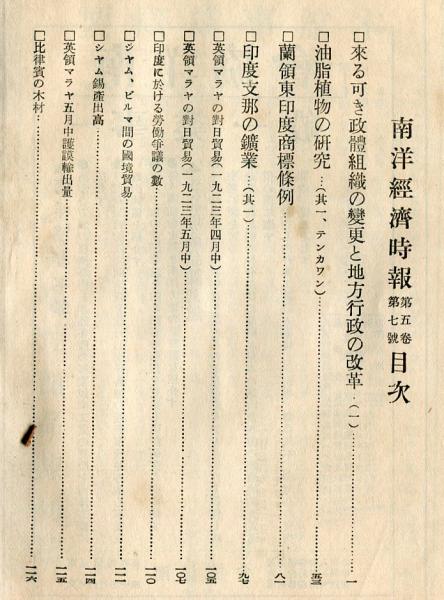 南洋經濟時報 第五卷 第七號 目次
□來る可き政體組織の變更と地方行政の改革…(一)…一
□油脂植物の研究…(其一、テンカワン)…五三
□蘭領東印度商標條例…八一
□印度支那の鑛業…(其一)…九七
□英領マラヤの對日貿易(一九二三年四月中)…一〇五
□英領マラヤの對日貿易(一九二三年五月中)…一〇七
□印度に於ける勞働爭議の數…一一〇
□シヤム、ビルマ間の國境貿易…一一一
□シヤム錫產出高…一一四
□英領マラヤ五月中護謨輸出量…一一五
□比律賓の木材…一一六